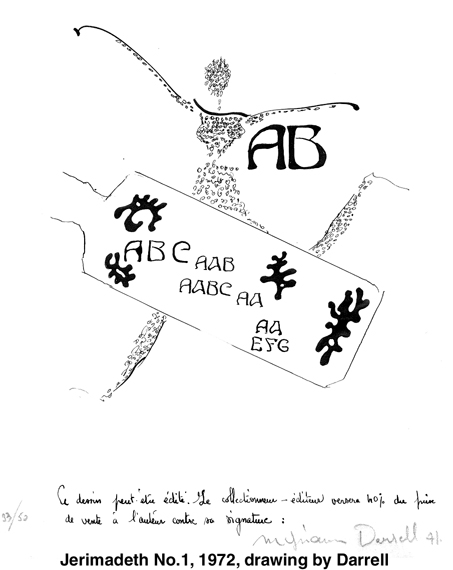 AB
ABC AAB
AABC AA
AA
EFG
Ce dessin peut être édité. Le collectionneur-éditeur versera 40% du prix
de vente à l'auteur contre sa signature :
33/50
Darrell
Jerimadeth No.1, 1972, drawing by Darrell